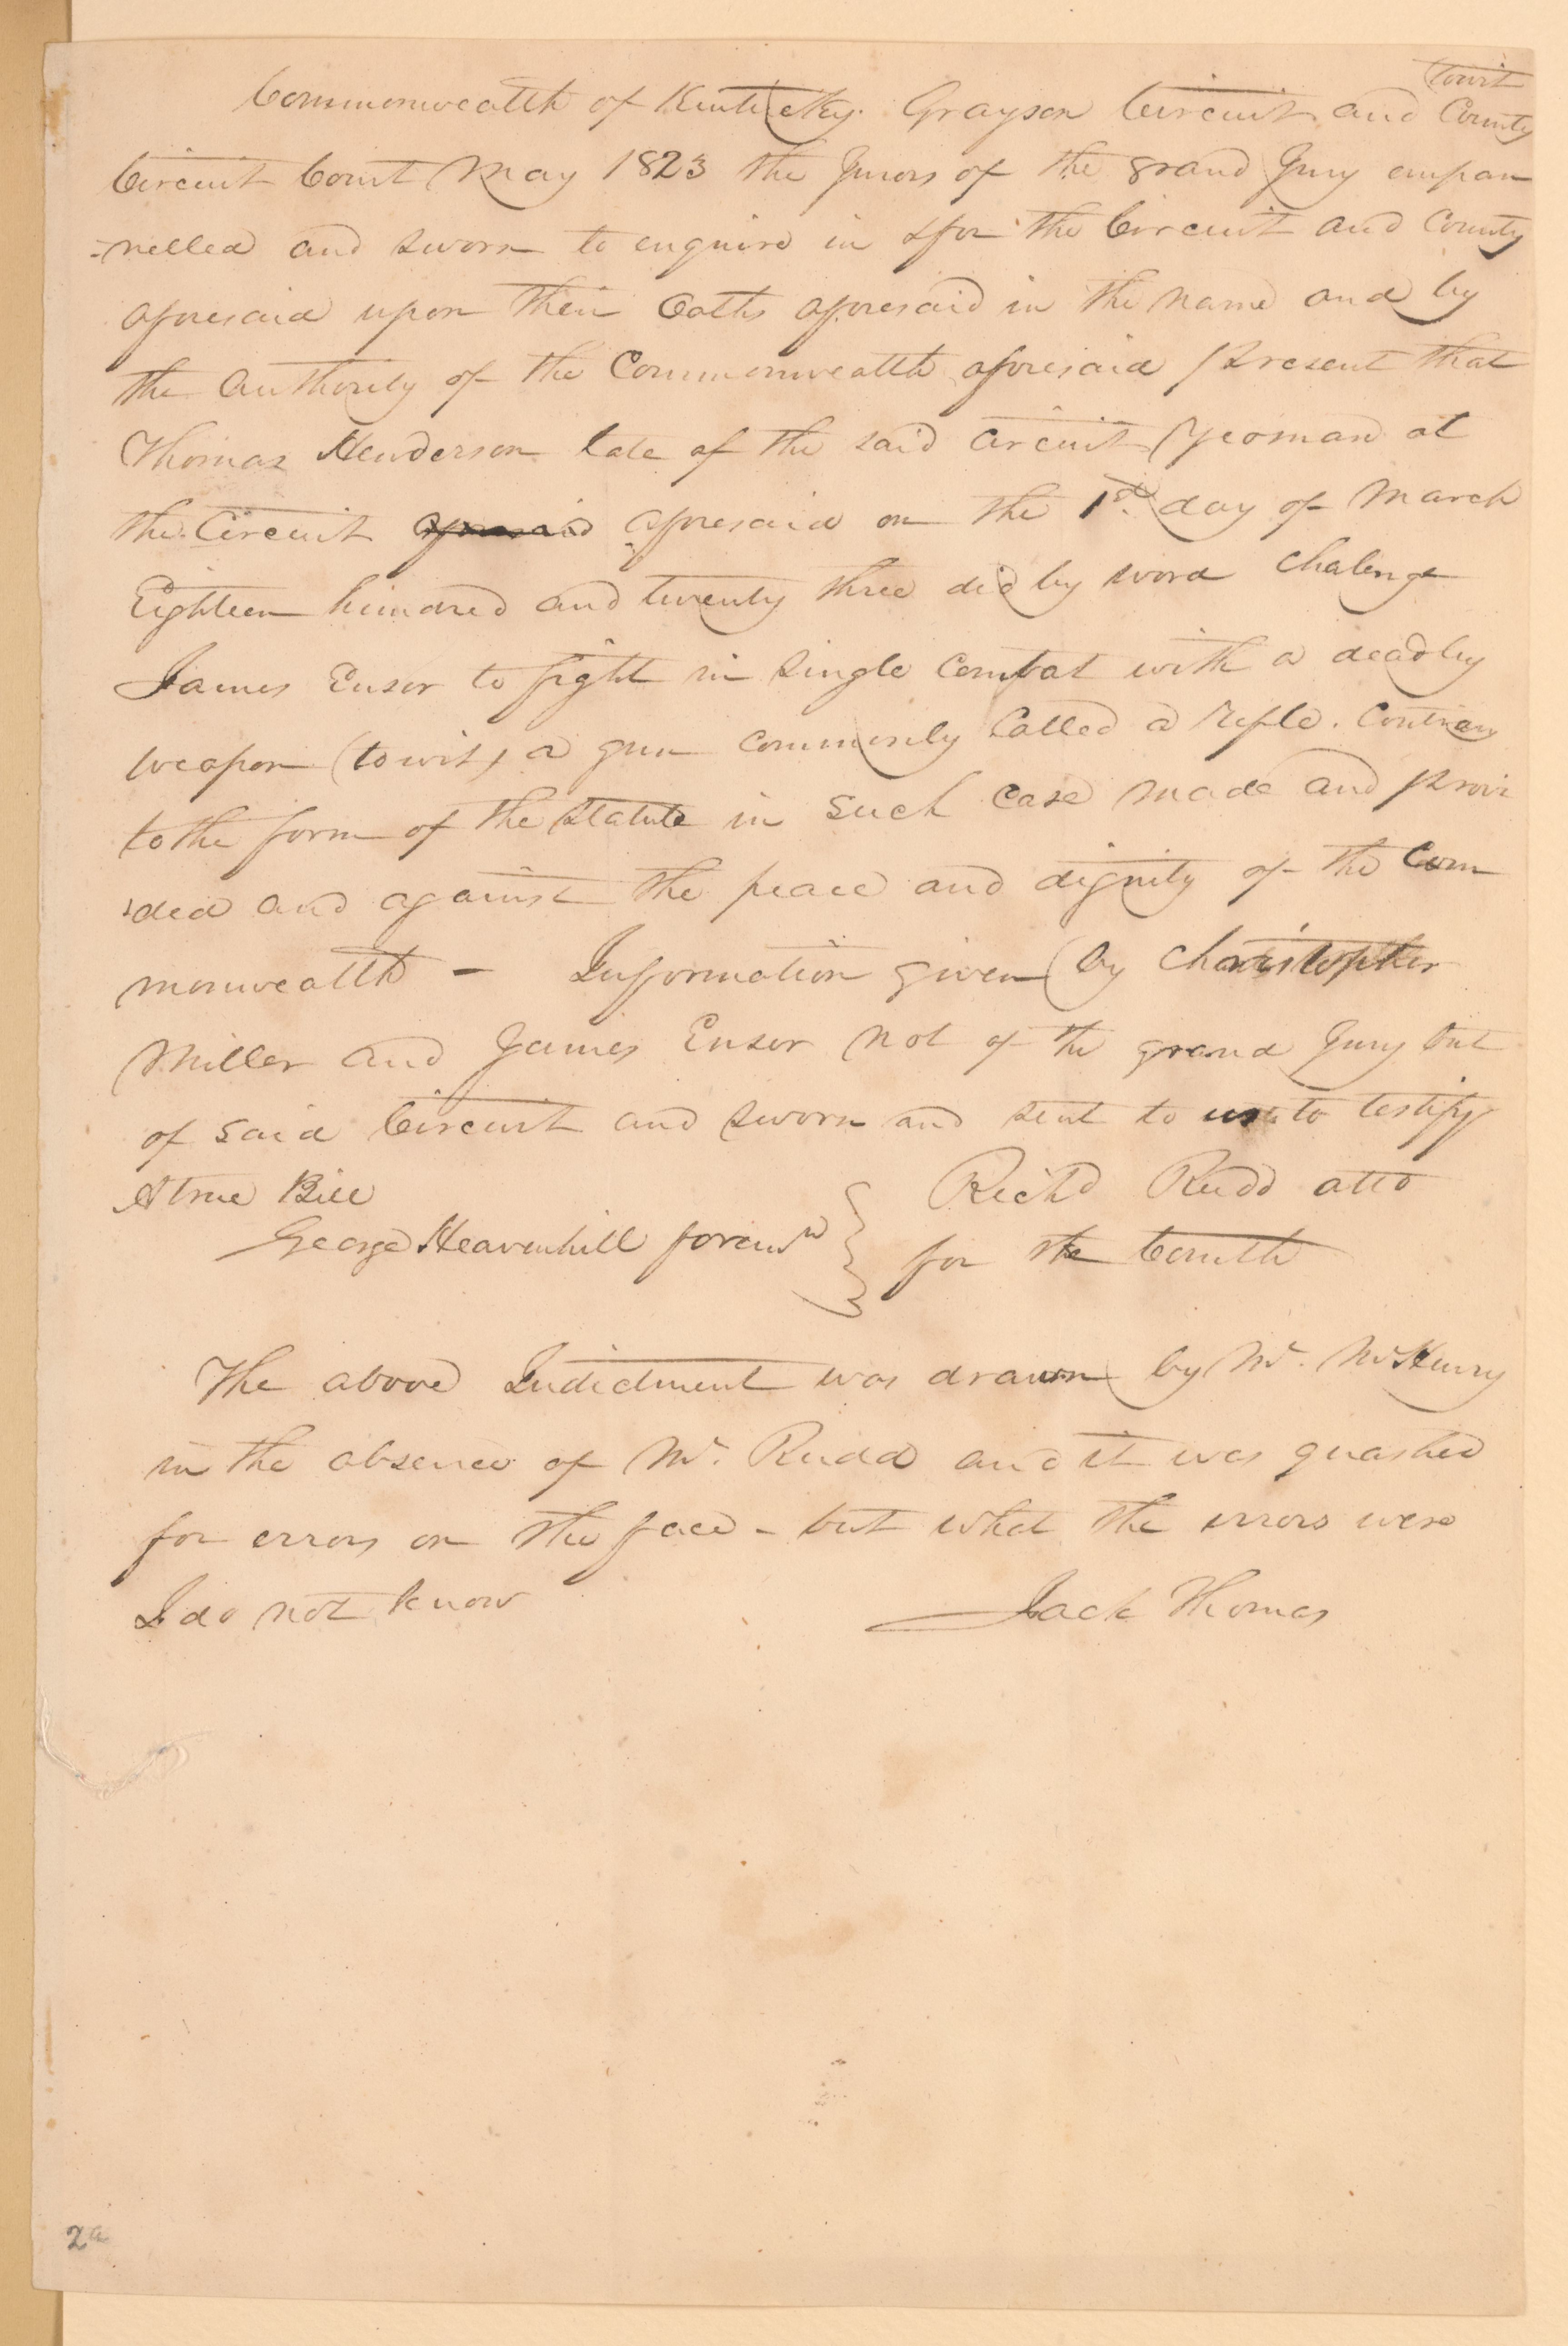 towit
Commonwealth of Kentucky. Grayson Circuit and County
Circuit Court May 1823 the Jurors of the grand Jury empan
-nelled and sworn to enquire in & for the Circuit and County
aforesaid upon their Oaths aforesaid in the name and by
the Authority of the Commonwealth aforesaid present that
Thomas Henderson late of the said circuit Yeoman at
the Circuit aforesaid aforesaid on the 1st. day of March
Eighteen hundred and twenty three did by word chalenge
James Ensor to fight in single combat with a deadley
weapon (towit) a gun commonly Called a rifle. Contrary
to the form of the Statute in such case made and provi
ded and against the peace and dignity of the Com
monwealth - Information given by Christopher
Miller and James Ensor not of the grand Jury but
of said Circuit and sworn and sent to us to testify
A true Bill
George Heavenhill forem
Rich'd Rudd atto
for the Comlth
The above Indictment was drawn by Mr. McHenry
in the absence of Mr. Rudd and it was quashed
for errors on the face - but what the errors were
I do not know
Jack Thomas
2a